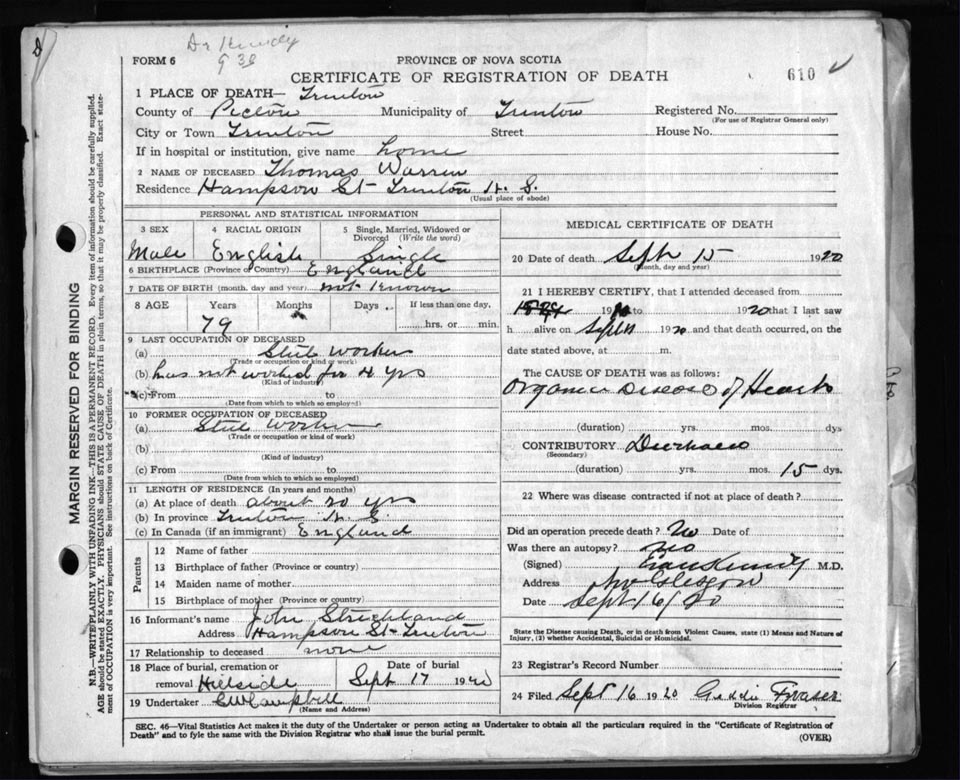 Dr Kennedy
FORM 6
PROVINCE OF NOVA SCOTIA
CERTIFICATE OF REGISTRATION OF DEATH
610
1 PLACE OF DEATH— Trenton
County of Pictou Municipality of Trenton Registered No.
(For use of Registrar General only)
City or Town Trenton Street House No.
If in hospital or institution, give name home
2 NAME OF DECEASED Thomas Warren
Residence Hampson St Trenton N. S.
(Usual place of abode)
MARGIN RESERVED FOR BINDING
N.B.—WRITE PLAINLY WITH UNFADING INK—THIS IS A PERMANENT RECORD. Every item of information should be carefully supplied.
AGE should be stated EXACTLY. PHYSICIANS should STATE CAUSE OF DEATH in plain terms, so that it may be properly classified. Exact state-
ment of OCCUPATION is very important. See instructions on back of Certificate.
PERSONAL AND STATISTICAL INFORMATION
3 SEX
Male
4 RACIAL ORIGIN
English
5 Single, Married, Widowed or
Divorced (Write the word)
Single
6 BIRTHPLACE (Province or Country) England
7 DATE OF BIRTH (month, day and year) not known
8 AGE Years Months Days If less than one day,
79 hrs. or min.
9 LAST OCCUPATION OF DECEASED
(a) Steel worker
(Trade or occupation or kind of work)
(b) has not worked for 4 yrs
(Kind of industry)
(c) From to
(Date from which to which so employed)
10 FORMER OCCUPATION OF DECEASED
(a) Steel worker
(Trade or occupation or kind of work)
(b)
(Kind of industry)
(c) From to
(Date from which to which so employed)
11 LENGTH OF RESIDENCE (In years and months)
(a) At place of death about 20 yrs
(b) In province Trenton N. S.
(c) In Canada (if an immigrant) England
Parents
12 Name of father
13 Birthplace of father (Province or country)
14 Maiden name of mother
15 Birthplace of mother (Province or country)
16 Informant's name John Strickland
Address Hampson St Trenton
17 Relationship to deceased none
18 Place of burial, cremation or
removal Hillside
Date of burial
Sept 17 1920
19 Undertaker Campbell
(Name and Address)
MEDICAL CERTIFICATE OF DEATH
20 Date of death Sept 15 1920
(Month, day and year)
21 I HEREBY CERTIFY, that I attended deceased from
19 to 1920 that I last saw
h alive on Sept 1920 and that death occurred, on
date stated above, at m.
The CAUSE OF DEATH was as follows:
Organic Disease of Heart
(duration) yrs. mos. dys
CONTRIBUTORY
(Secondary)
(duration) yrs. mos. 15 dys.
22 Where was disease contracted if not at place of death?
Did an operation precede death? No Date of
Was there an autopsy? no
(Signed) Kennedy M.D.
Address New Glasgow
Date Sept 16/20
State the Disease causing Death, or in death from Violent Causes, state (1) Means and Nature of
Injury, (2) whether Accidental, Suicidal or Homicidal.
23 Registrar's Record Number
24 Filed Sept 16 1920 Fraser
Division Registrar
SEC. 46—Vital Statistics Act makes it the duty of the Undertaker or person acting as Undertaker to obtain all the particulars required in the "Certificate of Registration of
Death" and to fyle the same with the Division Registrar who shall issue the burial permit.
(OVER)